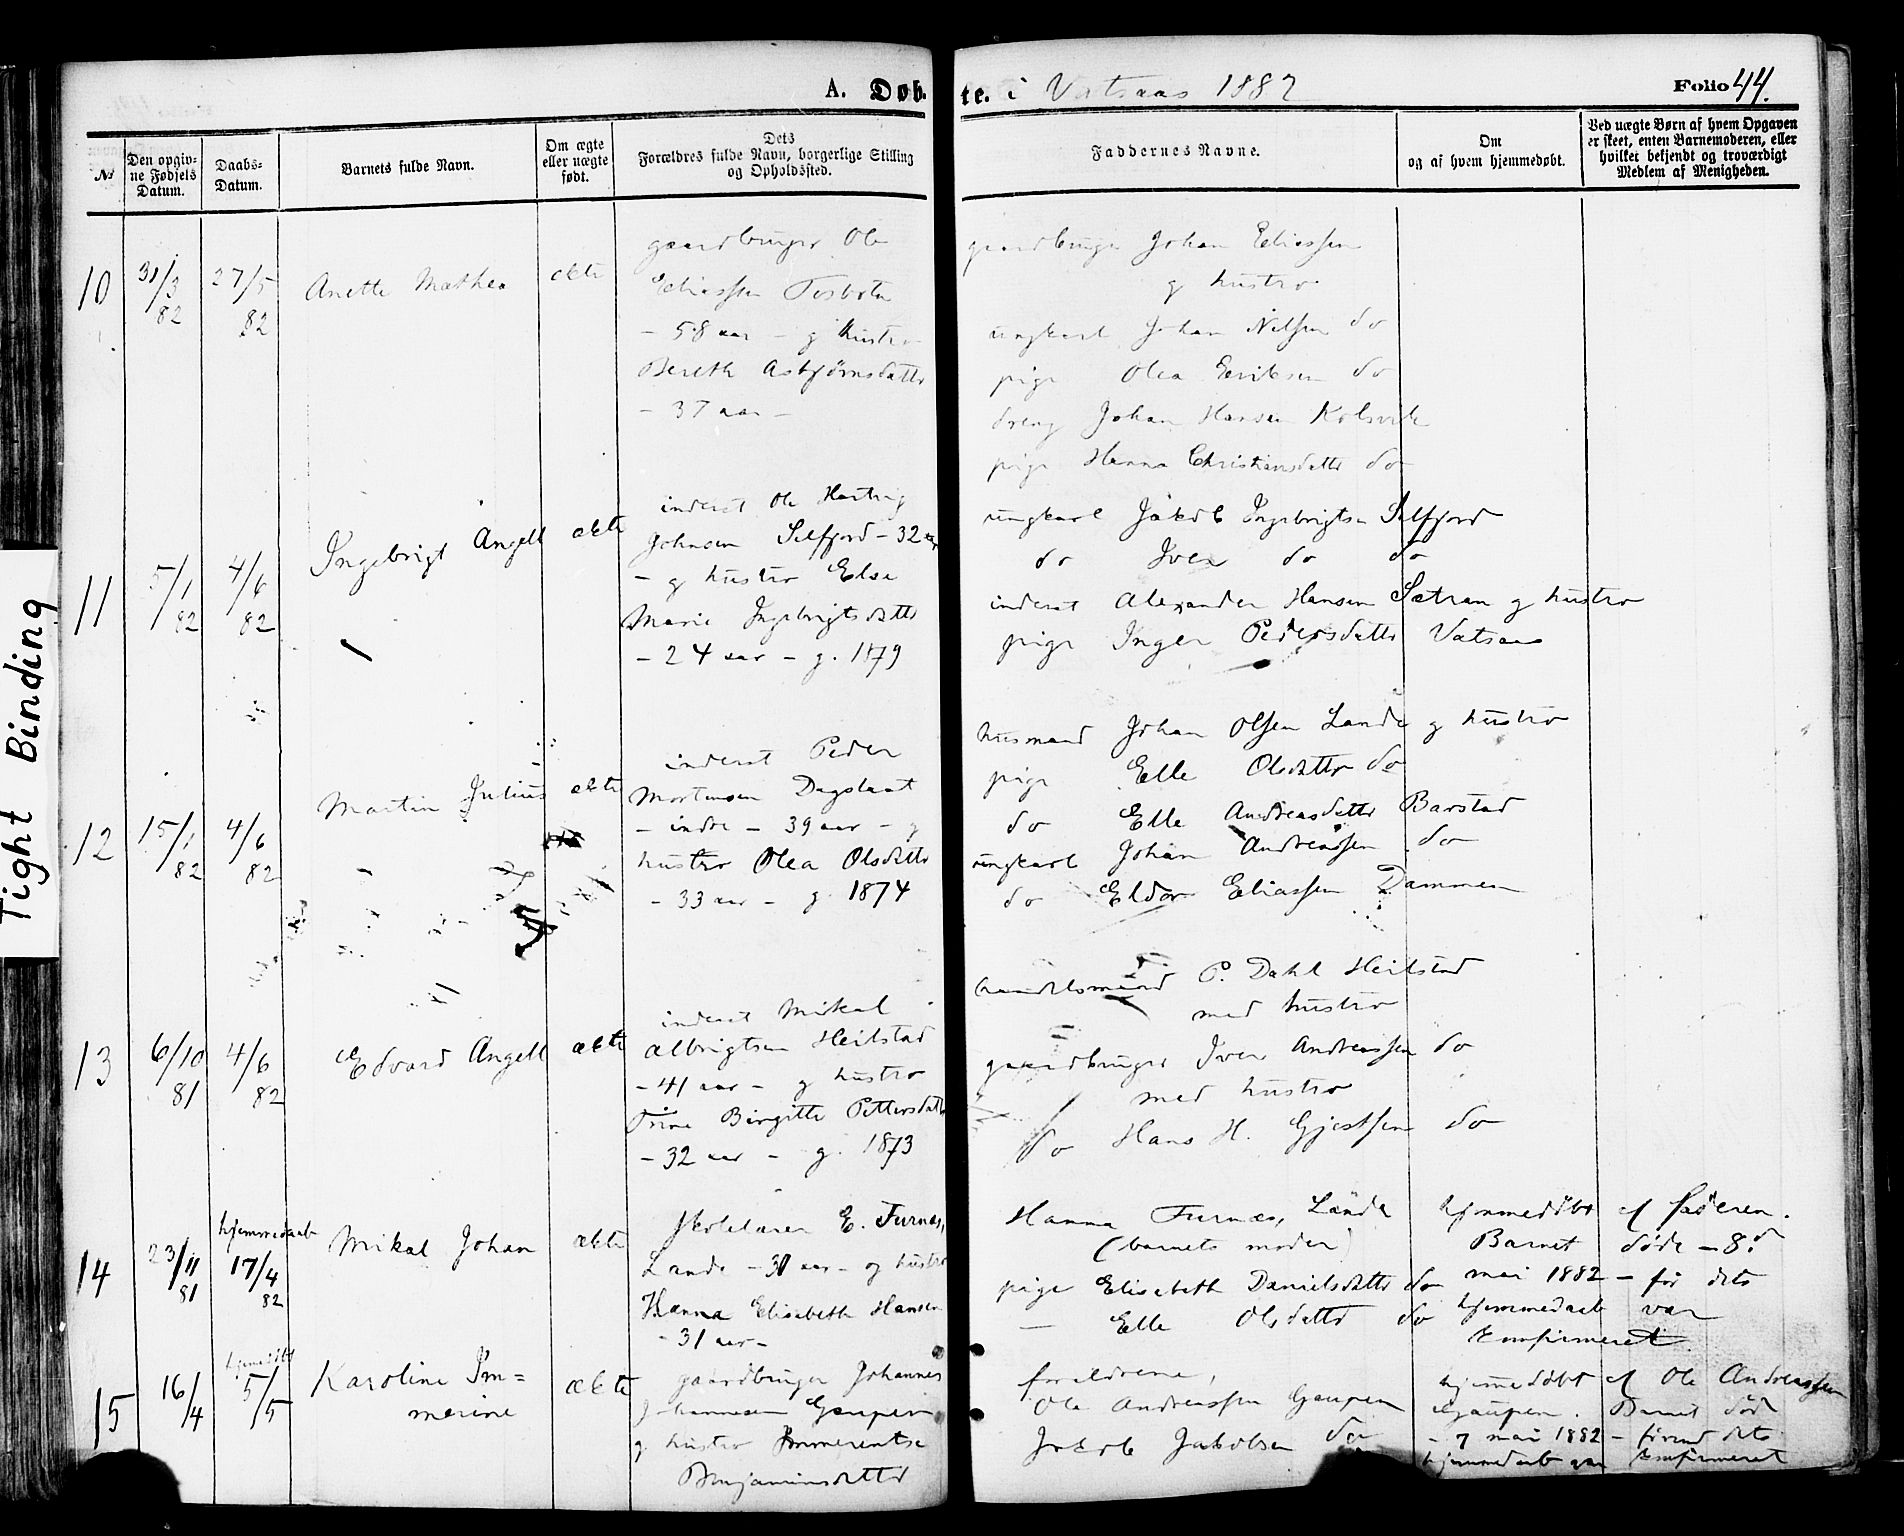 A. Døb-
te. i Vatsaas 1882
Folio 44.
№
Den opgiv-
ne Fødsels
Datum.
Daabs-
Datum.
Barnets fulde Navn.
Om ægte
eller uægte
født.
Dets
Forældres fulde Navn, borgerlige Stilling
og Opholdssted.
Faddernes Navne.
Om
og af hvem hjemmedøbt.
Ved uægte Børn af hvem Opgaven
er skeet, enten Barnemoderen, eller
hvilket bekjendt og troværdigt
Medlem af Menigheden.
10
31/3
82
27/5
82
Anette Mathea
ekte
gaardbruger Ole
Eliassen Tosboten
- 58 aar - g hustro
Bereth Asbjørnsdatter
- 37 aar -
gaardbruger Johan Eliassen
g hustro
ungkarl Johan Nilsen do
pige Olea Eriksen do
dreng Johan Hansen Kolsvik
pige Hanna Christiansdatter do
11
5/1
82
4/6
82
Ingebrigt Angell
ekte
inderst Ole Hartvig
Johnsen Selfjord - 32 aar
- g hustro Else
Marie Ingebrigtsdatter
- 24 aar - g. 1879
ungkarl Jakob Ingebrigtsen Selfjord
do Iver do do
inderst Alexander Hansen Sætran g hustro
pige Inger Pedersdatter Vatsaas
12
15/1
82
4/6
82
Martin Julius
ekte
inderst Peder
Mortensen Dagslaat
- indre - 39 aar - g
hustro Olea Olsdatter
- 33 aar - g 1874
husmand Johan Olsen Lande g hustro
pige Elle Olsdatter do
do Elle Andreasdatter Barstad
ungkarl Johan Andreassen do
do Eldor Eliassen Dammen
13
6/10
81
4/6
82
Edvard Angell
ekte
inderst Mikal
Albrigtsen Heilstad
- 41 aar - g hustro
Trine Birgitte Pettersdatter
- 32 aar - g. 1873
handelsmand P. Dahl Heilstad
med hustro
gaardbruger Iver Andreassen do
med hustro
do Hans H. Gjestsen do
14
23/11
81
hjemmedaab
17/4
82
Mikal Johan
ekte
skolelærer E. Furnæs,
Lande - 31 aar - og hustro
Hanna Elisabeth Hansen
- 31 aar -
Hanna Furnæs, Lande
(barnets moder)
pige Elisabeth Danielsdatter do
- Elle Olsdatter do
hjemmedøbt af faderen.
Barnet døde - 8de
mai 1882 - før dets
hjemmedaab var
konfirmeret.
15
16/4
hjemmedøbt
5/5
Karoline Im=
merine
ekte
gaardbruger Johannes
Johannesen Gaupen
g hustro Immerentse
Benjaminsdatter
forældrene,
Ole Andreassen Gaupen
Jakob Jakobsen do
hjemmedøbt af Ole Andreassen
Gaupen. Barnet døde
- 7 mai 1882 - førend dets
hjemmedaab var konfirmeret
Tight Binding